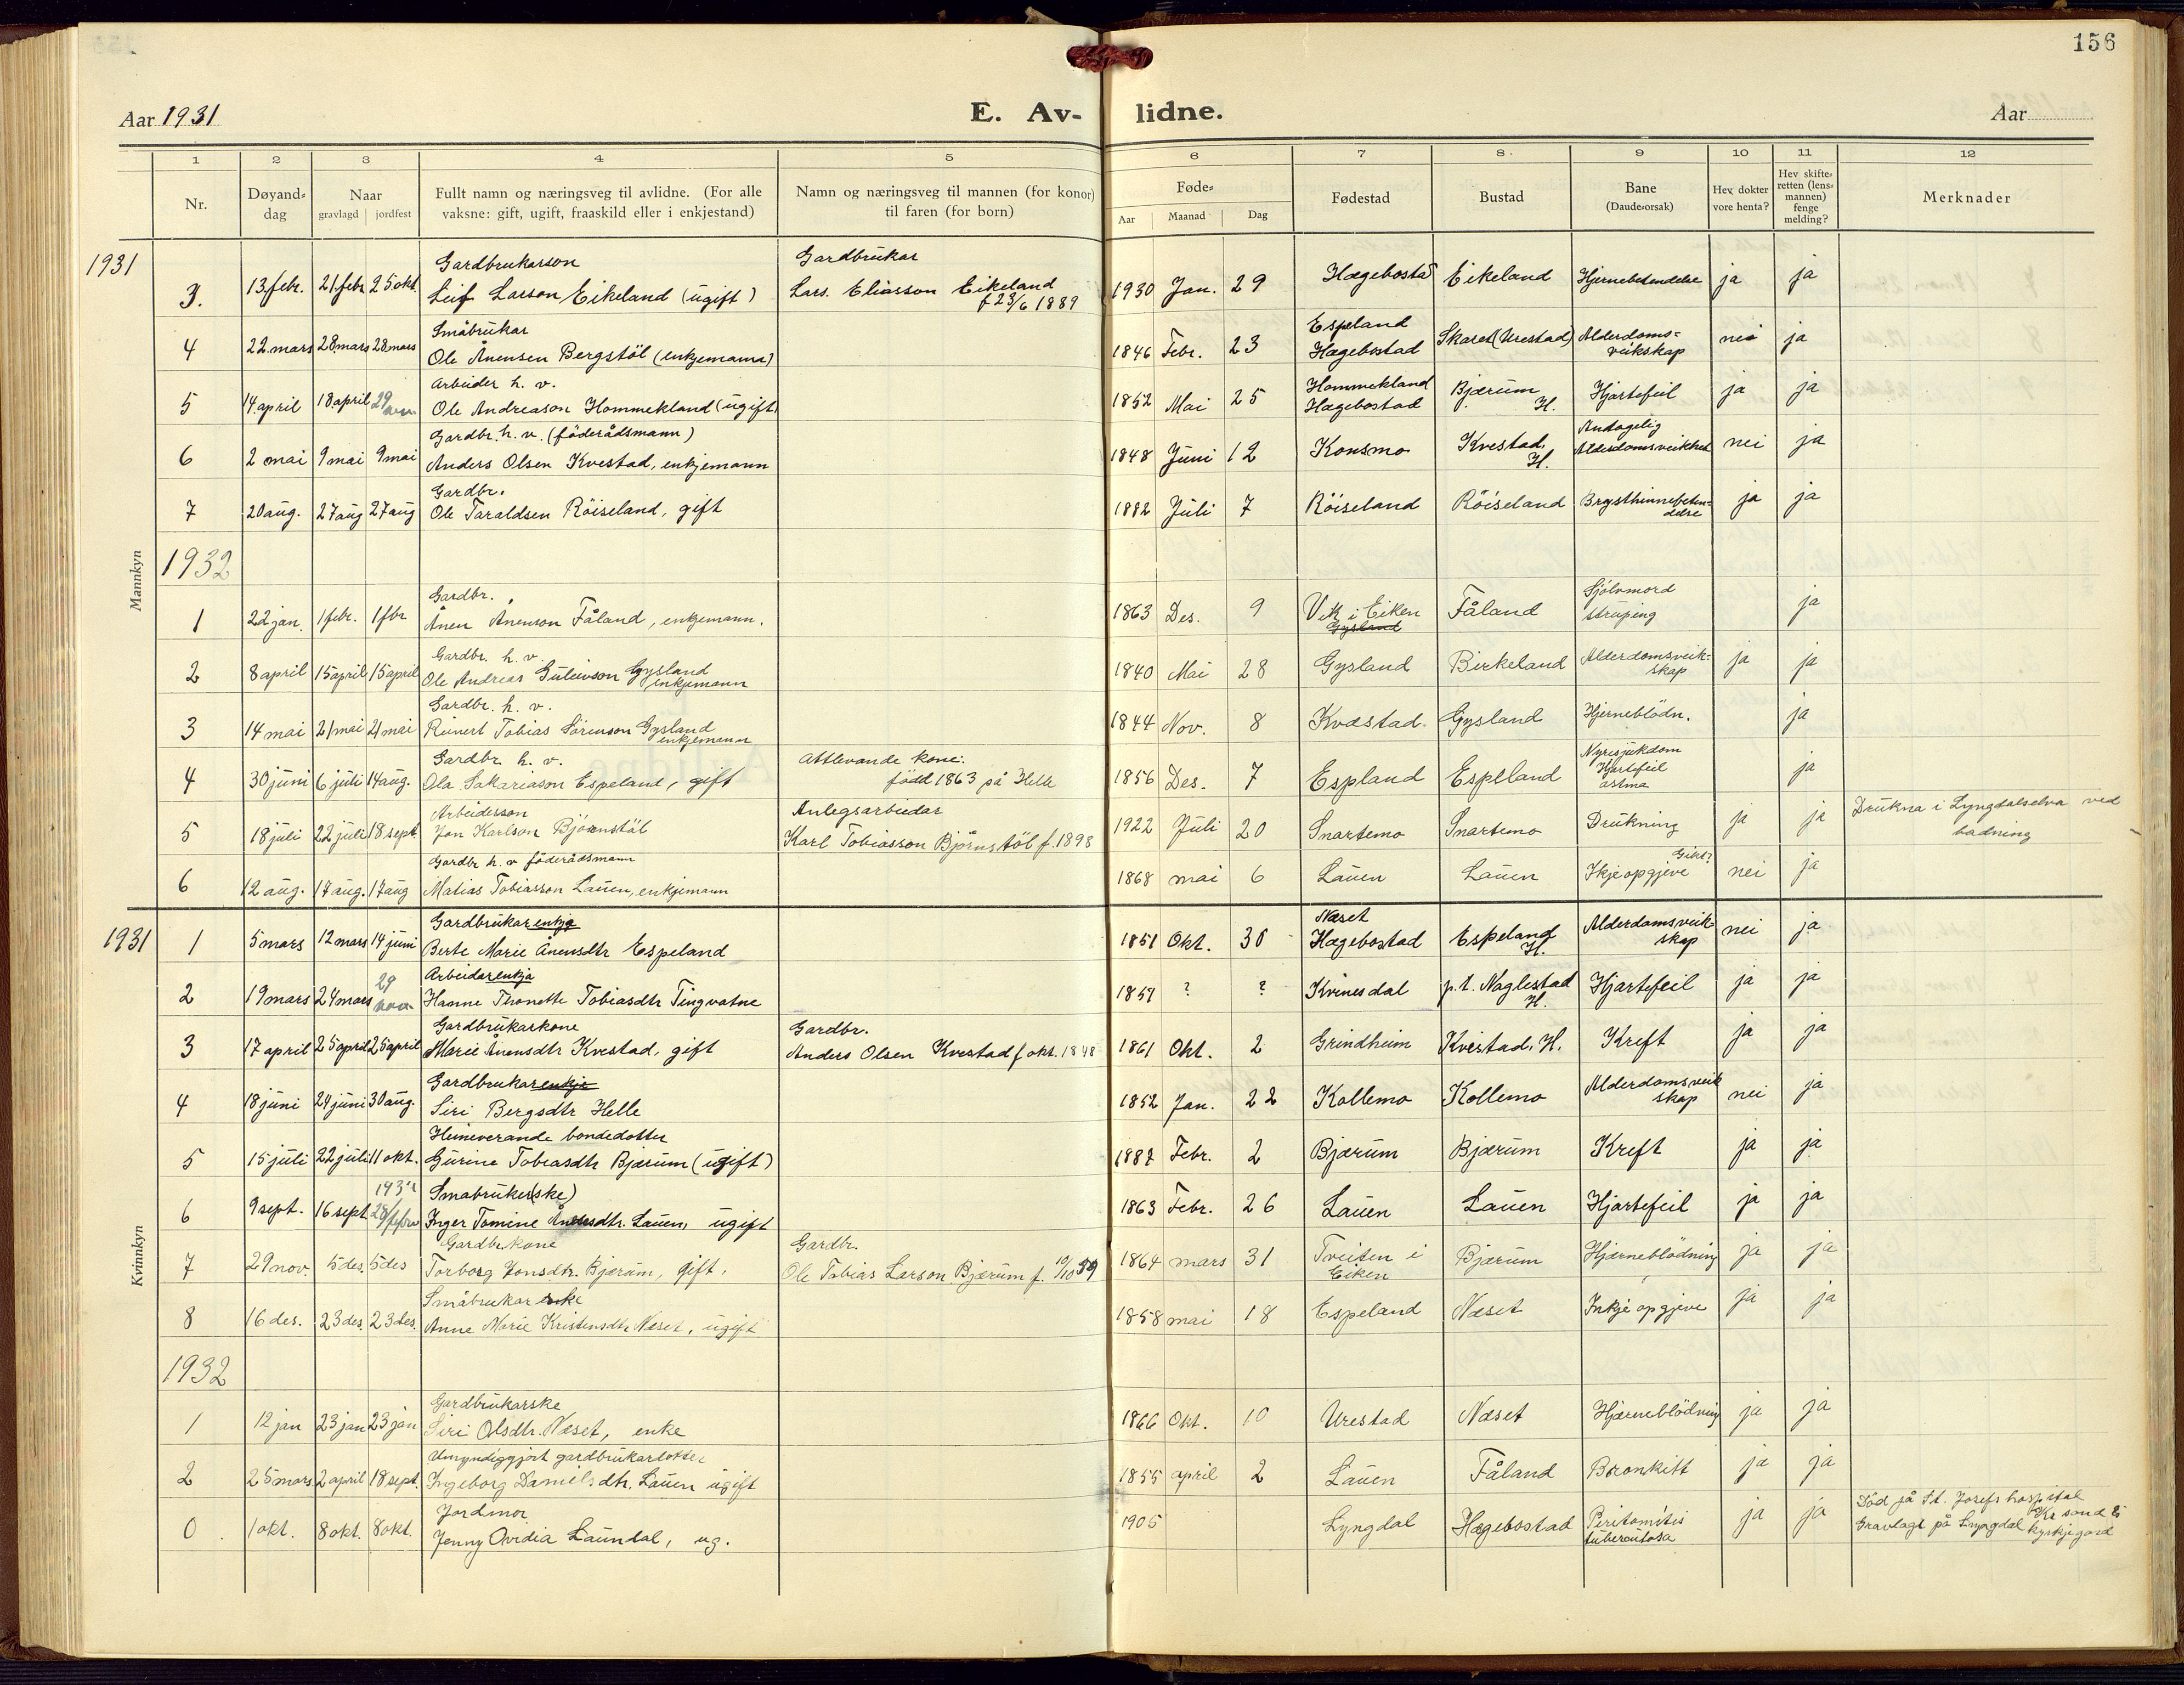 156
Aar 1931 E. Av- lidne. Aar
1 2 3 4 5 6 7 8 9 10 11 12
Nr. Døyand-dag Naar gravlagd jordfest Fullt namn og næringsveg til avlidne. (For alle vaksne: gift, ugift, fraaskild eller i enkjestand) Namn og næringsveg til mannen (for konor) til faren (for born) Føde- Aar Maanad Dag Fødestad Bustad Bane (Daude-orsak) Hev dokter vore henta? Hev skifte-retten (lens-mannen) fenge melding? Merknader
Mannkyn
1931
Gardbrukarson Gardbrukar
3. 13 febr. 21 febr 25 okt. Leif Larson Eikeland (ugift) Lars. Eliasson Eikeland f 23/6 1889 1930 Jan. 29 Hægebostad Eikeland Hjernebetendelse ja ja
Småbrukar Espeland
4 22 mars 28 mars 28 mars Ole Ånensen Bergstöl (enkjemann) 1846 Febr. 23 Hægebostad Skaret (Urestad) Alderdoms-veikskap nei ja
Arbeider h. v. Hommekland
5 14 april 18 april 29 nov Ole Andreason Hommekland (ugift) 1852 Mai 25 Hægebostad Bjærum H. Hjartefeil ja ja
Gardbr. h. v. (föderådsmann)
6 2 mai 9 mai 9 mai Anders Olsen Kvestad, enkjemann 1848 Juni 12 Konsmo Kvestad, H. Alderdomsveikhet nei ja
Gardbr.
7 20 aug. 27 aug 27 aug Ole Taraldsen Röiseland, gift 1882 Juli 7 Röiseland Röiseland Brysthinnebeten-delse ja ja
1932
Gardbr.
1 22 jan. 1 febr. 1 fbr Ånen Ånenson Fåland, enkjemann. 1863 Des. 9 Vik i Eiken Gysland Fåland Sjölvmord struping ja
Gardbr. h. v.
2 8 april 15 april 15 april Ole Andreas Guleivson Gysland enkjemann 1840 Mai 28 Gysland Birkeland Alderdomsveik-skap ja ja
Gardbr. h. v.
3 14 mai 21 mai 21 mai Reinert Tobias Sörenson Gysland enkjemann 1844 Nov. 8 Kvæstad. Gysland Hjerneblödn. ja
Gardbr. h. v. Attlevande kone:
4 30 juni 6 juli 14 aug. Ola Sakariason Espeland, gift född 1863 på Helle 1856 Des. 7 Espland Espeland Nyresjukdom Hjartefeil astma ja
Arbeiderson Anlegsarbeidar
5 18 juli 22 juli 18 sept. Jon Karlson Björnstöl Karl Tobiasson Björnstöl f. 1898 1922 Juli 20 Snartemo Snartemo Drukning ja ja Drukna i Lyngdalselva ved badning
Gardbr h. v föderådsmann
6 12 aug. 17 aug. 17 aug Matias Tobiasson Lauen, enkjemann 1868 mai 6 Lauen Lauen Ikje opgjeve Gikt? nei ja
Kvinnkyn
1931
Gardbrukarenkje Næset
1 5 mars 12 mars 14 juni Berte Marie Ånensdtr Espeland 1851 Okt. 30 Hægebostad Espeland H. Alderdomsveik-skap nei ja
Arbeidarenkja
2 19 mars 24 mars 29 nov Hanne Thonette Tobiasdtr Tingvatne 1857 ? ? Kvinesdal p.t. Naglestad H. Hjartefeil ja ja
Gardbrukarkone Gardbr.
3 17 april 25 april 25 april Marie Ånensdtr Kvestad, gift Anders Olsen Kvestad f okt. 1848 1861 Okt. 2 Grindheim Kvestad, H. Kreft ja ja
Gardbrukarenkje
4 18 juni 24 juni 30 aug. Siri Bergsdtr Helle 1852 Jan. 22 Kollemo Kollemo Alderdomsveik skap nei ja
Heimeverande bondedotter
5 15 juli 22 juli 11 okt. Gurine Tobiasdtr Bjærum (ugift) 1887 Febr. 2 Bjærum Bjærum Kreft ja ja
1932 Småbruker(ske)
6 9 sept. 16 sept 28/febr Inger Tomine Ånensdtr. Lauen, ugift 1863 Febr. 26 Lauen Lauen Hjartefeil ja ja
Gardbr.kone Gardbr.
7 29 nov. 5 des. 5 des Torborg Jonsdtr. Bjærum, gift. Ole Tobias Larson Bjærum f. 10/10 59 1864 mars 31 Tveiten i Eiken Bjærum Hjærneblödning ja ja
Småbrukarenke
8 16 des. 23 des. 23 des. Anne Marie Kristensdtr Næset, ugift 1858 mai 18 Espeland Næset Inkje opgjeve ja ja
1932
Gardbrukarske
1 12 jan 23 jan 23 jan Siri Olsdtr. Næset, enke 1866 Okt. 10 Urestad Næset Hjærneblödning ja ja
Umyndiggjort gardbrukardotter
2 25 mars 2 april 18 sept. Ingeborg Danielsdtr. Lauen ugift 1855 april 2 Lauen Fåland Bronkitt ja ja
Jordmor
0 1 okt. 8 okt. 8 okt. Jenny Ovidia Laundal, ug. 1905 Lyngdal Hægebostad Peritonitis tuberculosa ja ja Död på St. Josefs hospital Kr sand S Gravlagt på Lyngdal kyrkjegard